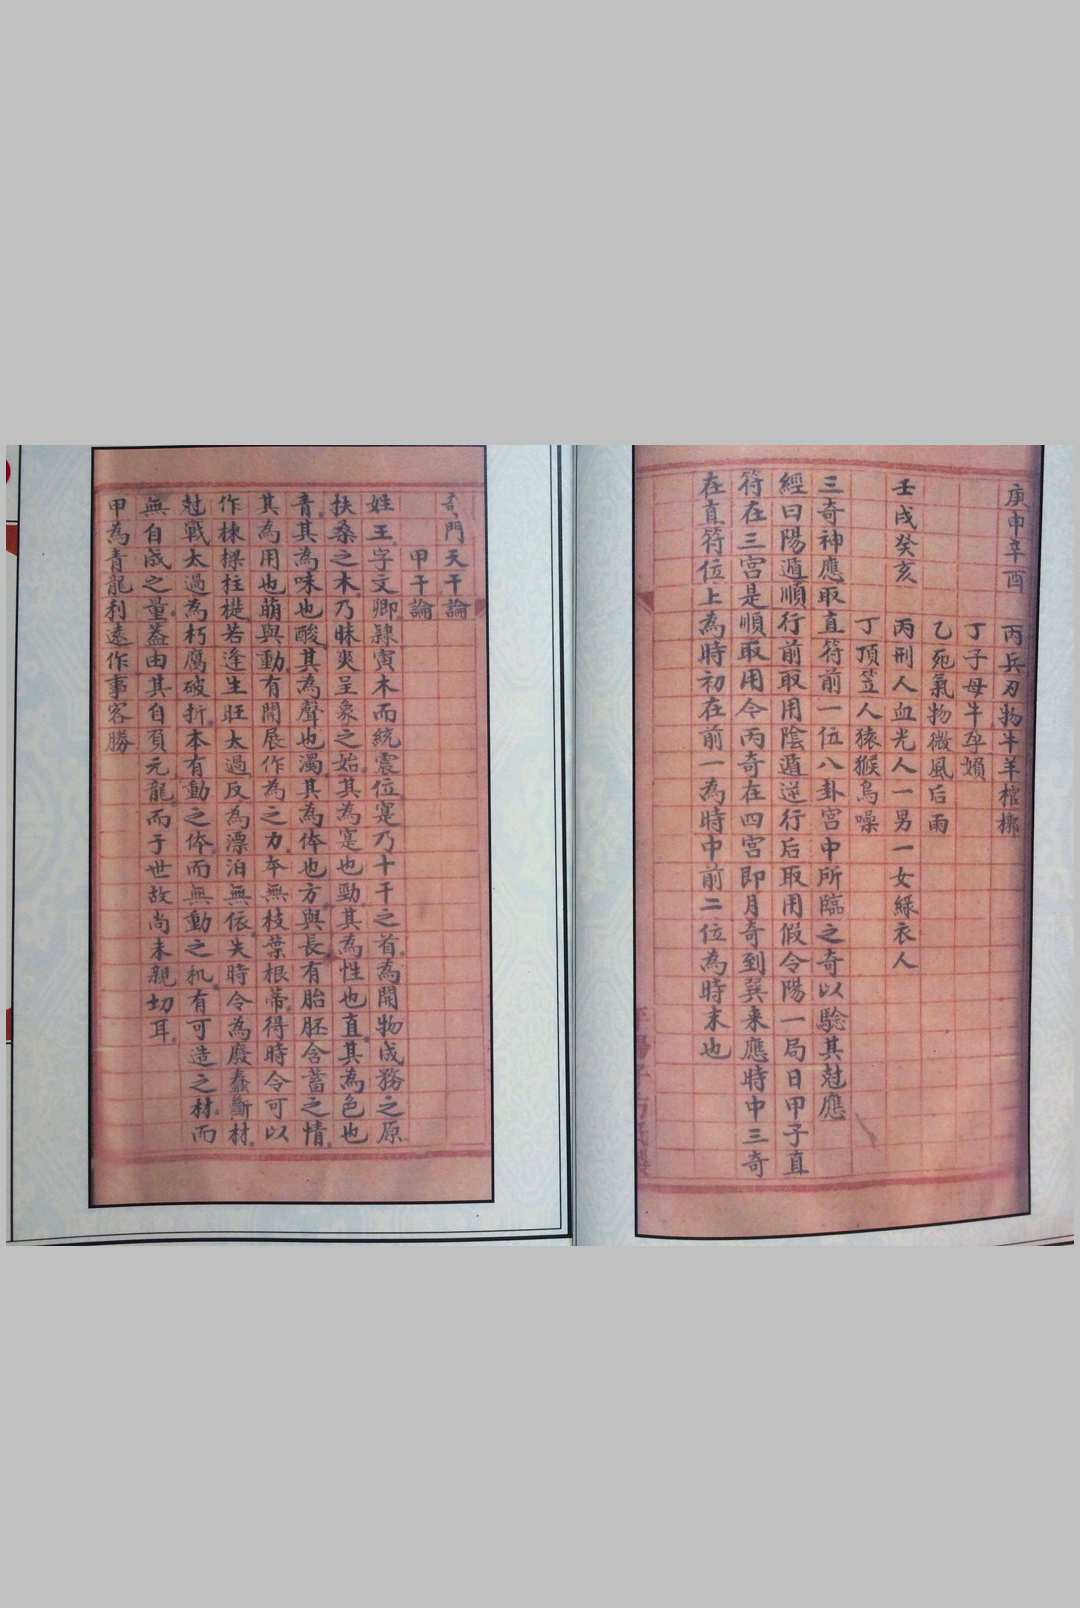 庚申辛酉 丙兵刃物牛羊棺槨
丁子母牛孕婦
乙死氣物微風后雨
壬戌癸亥 丙刑人血光人一男一女綠衣人
丁頂笠人猿猴鳥噪
三奇神應取直符前一位八卦宮中所臨之奇以驗其尅應
經曰陽遁順行前取用陰遁逆行后取用假令陽一局日甲子直
符在三宮是順取用令丙奇在四宮即月奇到巽来應時中三奇
在直符位上為時初在前一為時中前二位為時末也
奇門天干論
甲干論
姓王字文卿隸寅木而統震位寔乃十干之首為開物成務之原
扶桑之木乃昧爽呈象之始其為寔也勁其為性也直其為色也
青其為味也酸其為聲也濁其為体也方與長有胎胚含蓄之情
其為用也萌與動有開展作為之力本無枝葉根蒂得時令可以
作棟樑柱槤若逢生旺太過反為漂泊無依失時令為廢蠢斷材
尅戰太過為朽腐破折本有動之体而無動之机有可造之材而
無自成之量蓋由其自負元龍而于世故尚未親切耳
甲為青龍利遠作事客勝